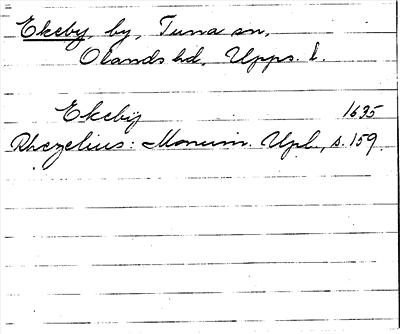 Ekeby, by, Tuna sn,
Olands hd, Upps. l.
Ekebÿ 1635
Rhezelius: Monum. Upl., s. 159.